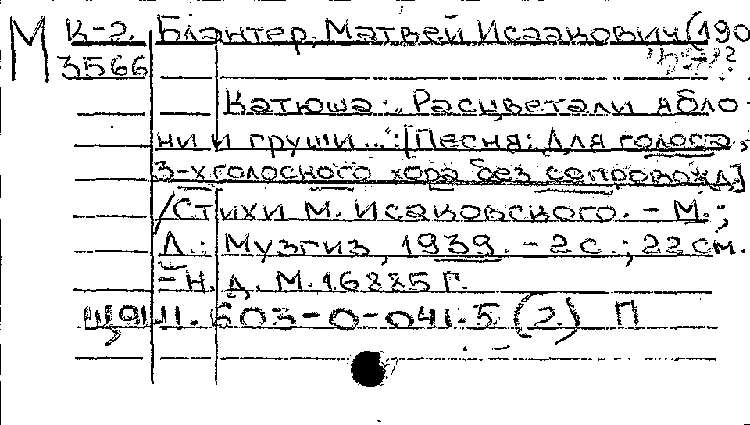 М К-2. Блантер, Матвей Исаакович (190
3566
Катюша: „Расцветали ябло-
ни и груши...“: [Песня: Для голоса,
3-х голосного хора без сопровожд.]
/Стихи М. Исаковского. - М.;
Л.: Музгиз, 1939. - 2 с.; 22 см.
= Н. д. М. 16885 Г.
Щ911.603-0-041.5 (2.) П